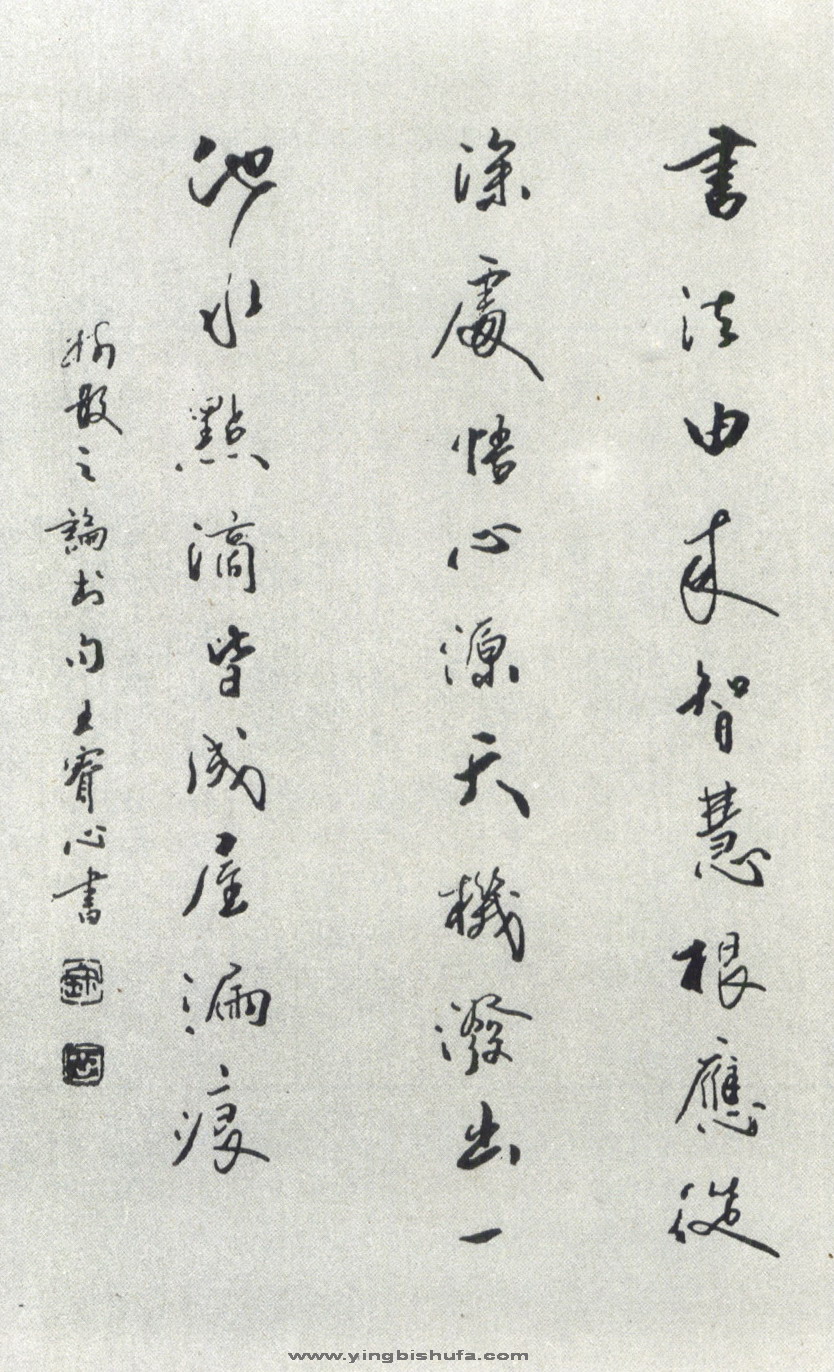 書法由来智慧根應從
深處悟心源天機潑出一
池水點滴皆成屋漏痕
林散之論书句王睿心書
www.yingbishufa.com